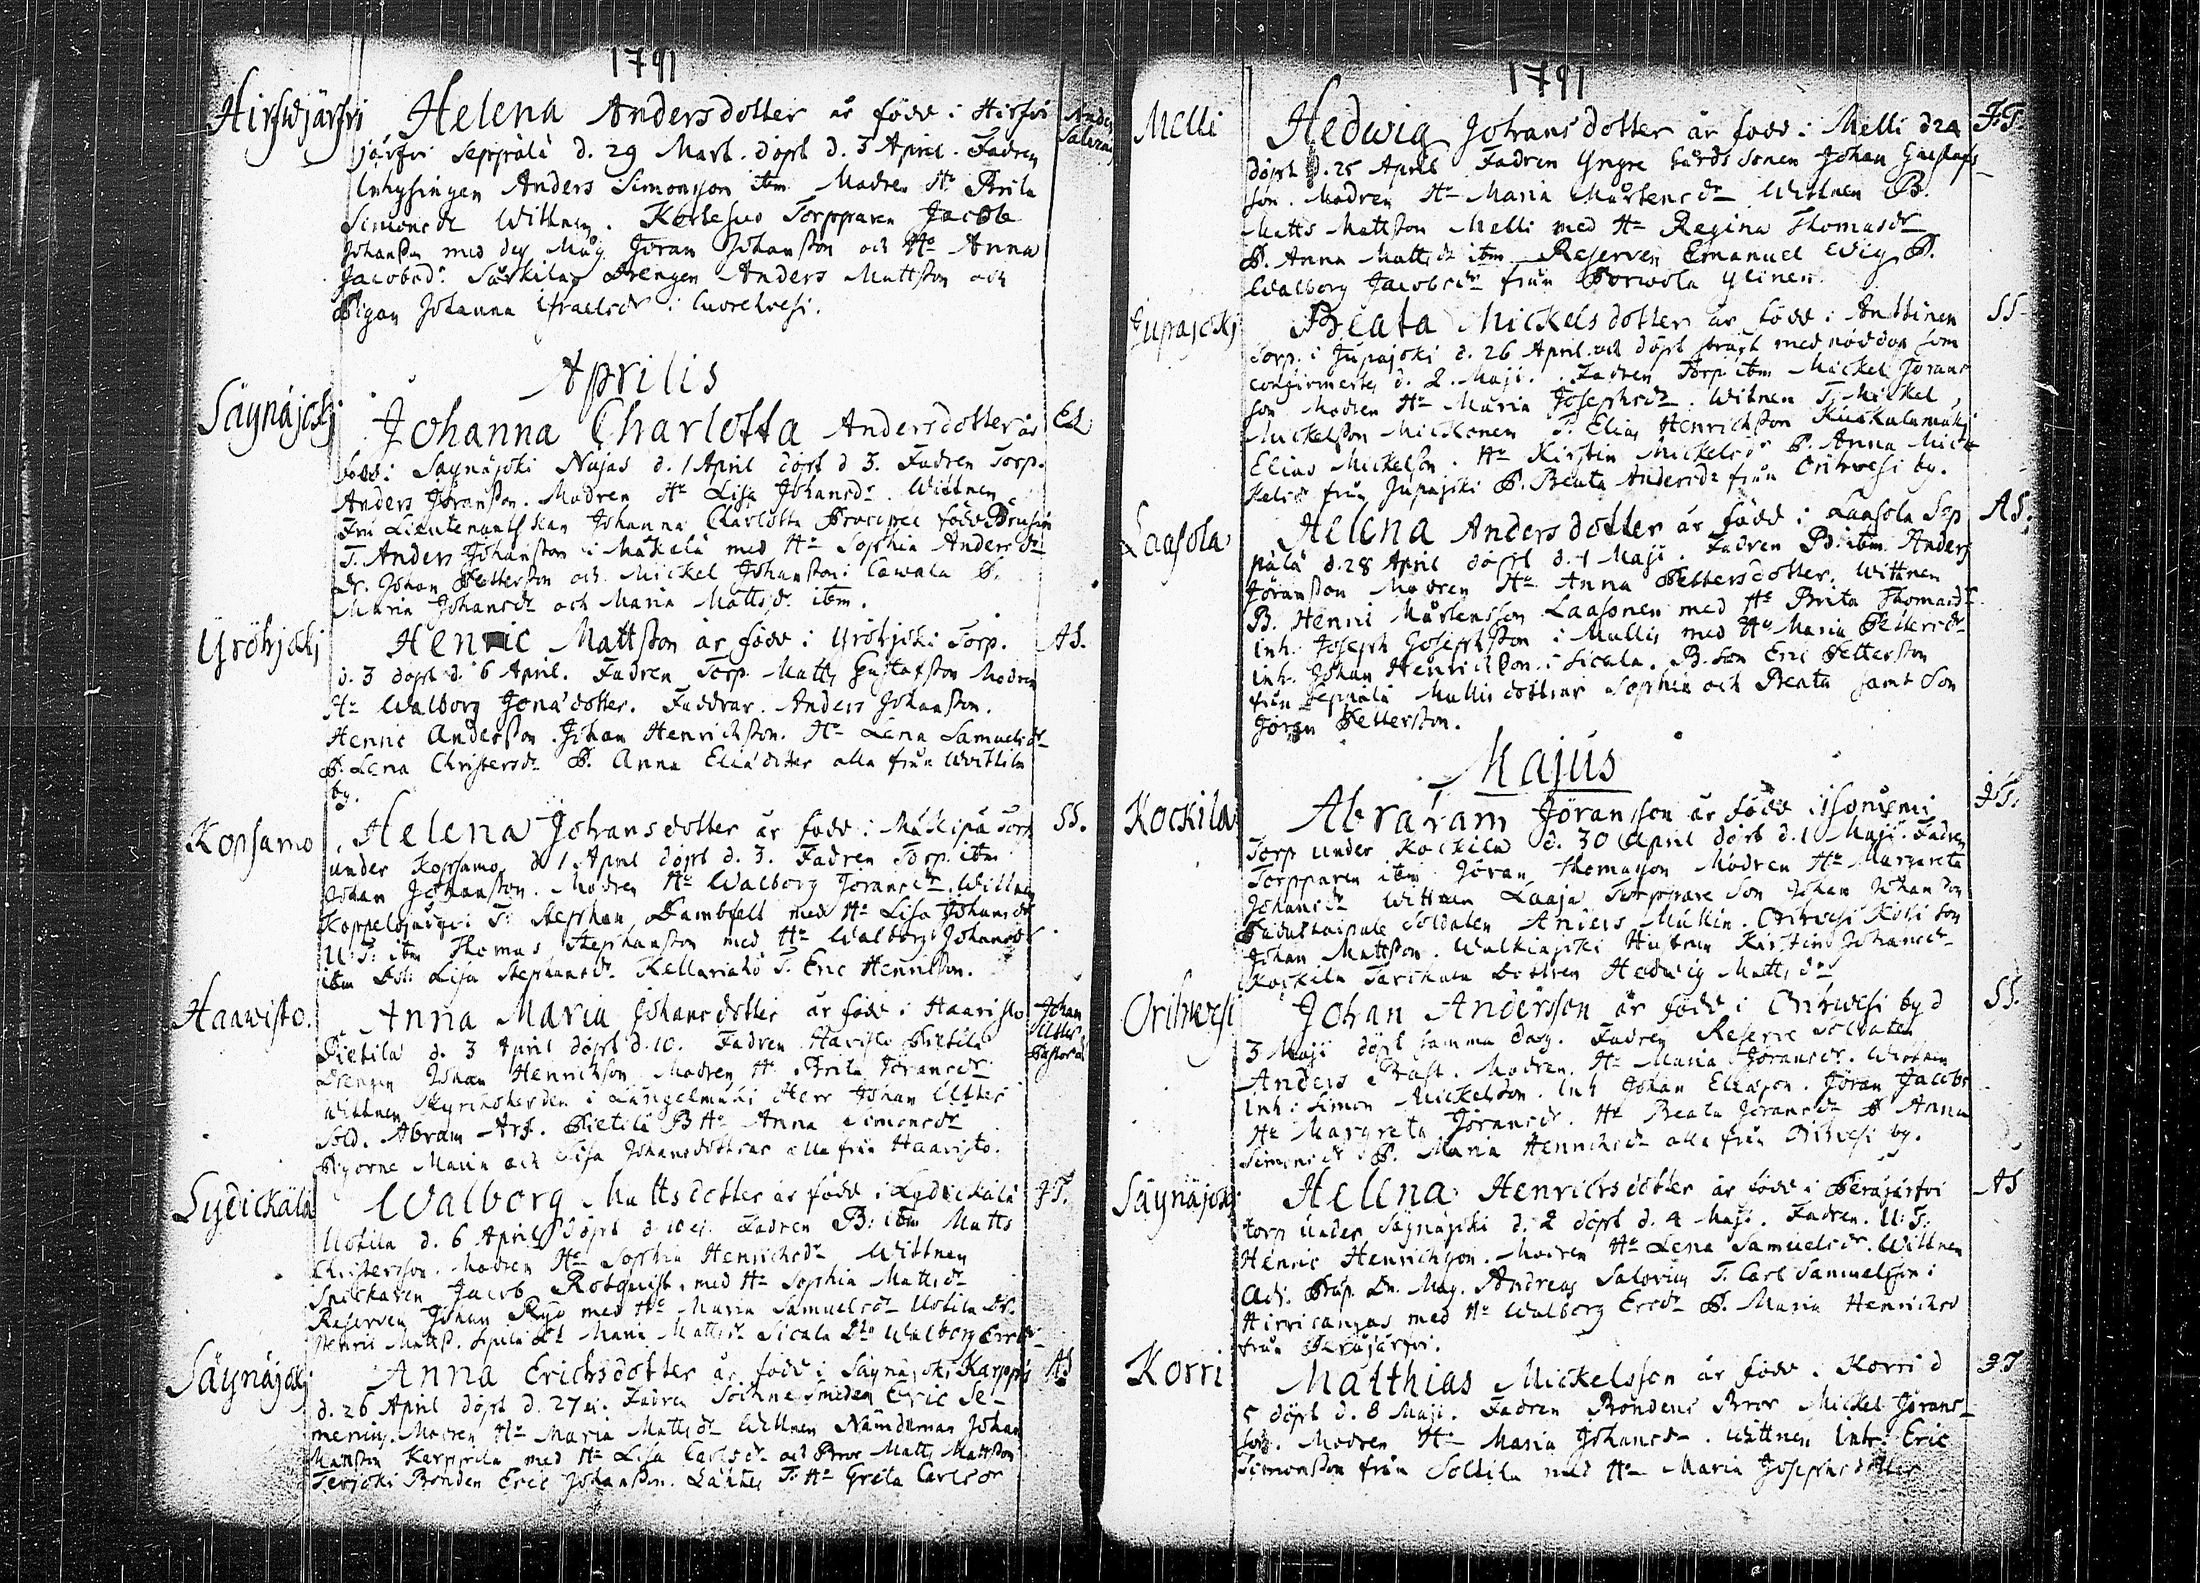 1791
Hirswjärfvi Helena Andersdotter är född i Hirsvi
järfvi Seppälä d. 29 Mart. döpt d. 3 April. Fadren
Inhysingen Anders Simonsson ibm Modren Ha Brita
Simonsdr Wittnen. Torpparen Jacob
Johansson med des Måg Jöran Johansson och Ha Anna
Jacobsdr Särkilax Drengen Anders Mattsson och
Pigan Johanna Israelsdr i Kuorehvesi.
Anders
Salenius
Aprilis
Säynäjoki Johanna Charlotta Andersdotter är
född i Säynäjoki Nujas d. 1 April döpt d 3. Fadren Torp.
Anders Jöransson. Modren Ha Lisa Johansdr. Wittnen
Fru Lieutenantskan Johanna Charlotta född
T. Anders Johansson i Mäkelä med Ha Sophia Andersdr
Dr. Johan Pettersson och Mickel Johansson i Cawala P.
Maria Johansdr och Maria Mattsdr ibm.
EL
Yröhjoki Henric Mattsson är född i Yröhjoki Torp.
d. 3 döpt d. 6 April. Fadren Torp. Matts Gustafsson Modren
Ha Walborg Jonædotter. Faddrar. Anders Johansson.
Henric Andersson. Johan Henrichsson. Ha Lena Samuelsdr
P. Lena Christersdr P. Anna Eliædotter alla från
by.
AS.
Kopsamo Helena Johansdotter är född i Mäkipä Torp
under Kopsamo d 1 April döpt d. 3. Fadren Torp. ibm
Johan Johansson. Modren Ha Walborg Jöransdr. Wittnen
T. Stephan Dambfelt med Ha Lisa Johansdr
U: T: ibm Thomas Stephansson med Ha Walborg Johansdr
ibm Lisa Stephansdr. T. Eric Henricsson.
SS.
Haawisto. Anna Maria Johansdotter är född i Haavisto
Pietilä d. 3 April döpt d. 10. Fadren Havisto Pietilä
Drengen Johan Henrichson Modren H Brita Jöransdr
Wittnen Kyrkoherden i Längelmäki Herr Johan Uther
Sold. Abram Arf. Pietilä B Ha Anna Simonsdr
Pigorne Maria och Lisa Johansdöttrar alla från Haavisto.
Johan
Uther
Pastor
Lydickälä Walborg Mattsdotter är född i Lydickälä
Uotila d. 6 April döpt d. 10 ej. Fadren B: ibm Matts
Christersson. Modren Ha Sophia Henrichsdr Wittnen
Jacob Rotquist med Ha Sophia Mattsdr
Reserven Johan Ryd med Ha Maria Samuelsdr Uotila Dr.
Henric Matts. Maria Mattsdr Sicala Walborg
J.T.
Säynäjoki Anna Erichsdotter är född i Säynäjoki Karppi
d. 26 April döpt d. 27 ej. Fadren Sockne Smeden Eric Se-
nenius. Modren Ha Maria Mattsdr Wittnen Nämdeman Johan
Mattsson Karppila med Ha Lisa Carlsdr och Bror Matts Mattsson
Terjoki Bonden Eric Johansson. T: Ha Greta Carlsdr
AS
1791
Melli Hedwig Johansdotter är född i Melli d 24
döpt d. 25 April Fadren Yngre Gårds Sonen Johan Gustafs
son. Modren Ha Maria Mårtensdr Wittnen B.
Matts Mattsson Melli med Ha Regina Thomasdr
P. Anna Mattsdr ibm Reserven Emanuel Wig P.
Walborg Jacobsdr från Porwola Ylinen.
J:T.
Jupajoki Beata Mickelsdotter är född i Anttinen
Torp. i Jupajoki d. 26 April och döpt med nöddop som
confirmertes d. 2. Maji. Fadren Torp ibm Mickel Jörans
son Modren Ha Maria Josephsdr. Witnen T. Mickel
Mickelsson Mickonen T. Elias Henrichsson
Elias Mickelson. Ha Kirstin Mickelsdr P. Anna Mic
kelsdr från Jupajoki P. Beata Andersdr från Orihwesi by.
SS
Laasola Helena Andersdotter är född i Laasola Sep
pälä d. 28 April döpt d. 1 Maji. Fadren B: ibm Anders
Jöransson Modren Ha Anna Pettersdotter. Wittnen
B. Henric Mårtensson Laasonen med Ha Brita Thomasdr
inh. Joseph Josephsson i Mullis med Ha Maria Pettersdr
inh. Johan Henrichsson i Sicala. B. Son Eric Pettersson
från Seppälä Mullis döttrar Sophia och Beata samt Son
Jöran Pettersson.
AS.
Majus
Kockila Abraham Jöransson är född i
Torp under Kockila d. 30 April döpt d. 1 Maji. Fadren
Torpparen ibm Jöran Thomasson Modren Ha Margareta
Johansdr Wittnen Laaja Torppare Son Johan Johansson
Soldaten Anders Mullin. Orihwesi Son
Johan Mattsson. Walkiajoki Hustrun Kirstin Johansdr
Kockila Dottren Hedwig Mattsdr
J:T.
Orihwesi Johan Andersson är född i Orihwesi by d
3 Maji döpt samma dag. Fadren Reserve Soldaten
Anders Modren. Ha Maria Jöransdr. Wittnen
Inh: Simon Mickelsson. Inh Johan Eliasson. Jöran Jacobs
Ha Margreta Jöransdr. Ha Beata Jöransdr P Anna
Simonsdr P. Maria Henrichsdr alla från Orihvesi by.
SS.
Säynäjoki Helena Henrichsdotter är född i Peräjärfvi
torp under Säynäjoki d. 2 döpt d. 4 Maji. Fadren. U: T:
Henric Henrichsson. Modren Ha Lena Samuelsdr. Wittnen
Adj. Præp. Dn. Mag. Andreas Salovius T. Carl Samuelsson i
Hirvicangas med Ha Walborg Ericsdr P. Maria Henrichsd
från Peräjärfvi.
AS
Korri Matthias Mickelsson är född i Korri d
5 döpt d. 8 Maji. Fadren Bondens Bror Mickel Jörans
son. Modren Ha Maria Johansdr. Wittnen Inh: Eric
Simonsson från Soltila med Ha Maria Josephsdotter
JT